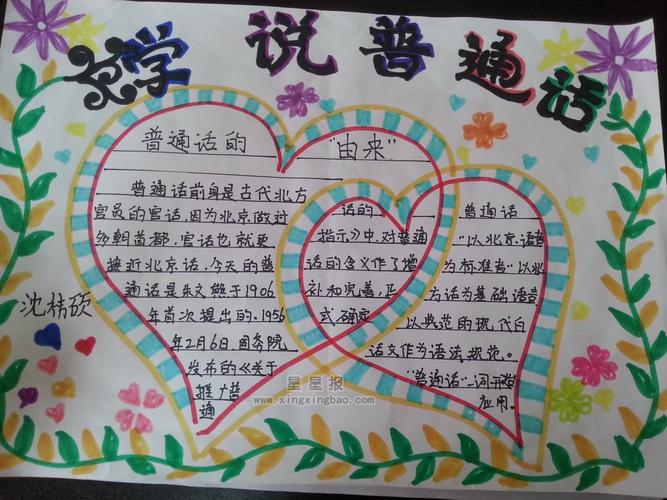 学说普通话
普通话的"由来"
普通话前身是古代北方
官员的官话,因为北京做过
多朝首都,官话也就更
接近北京话,今天的普
通话是朱文熊于1906
年首次提出的.1956
年2月6日,国务院
发布的《关于
推广普
通
话的
指示》中,对普通
话的含义作了增
补和完善,正
式确定
普通话
"以北京语音
为标准音"以北
方话为基础语言
以典范的现代白
话文作为语法规范。
"普通话"一词开始
应用。
星星报
www.xingxingbao.com